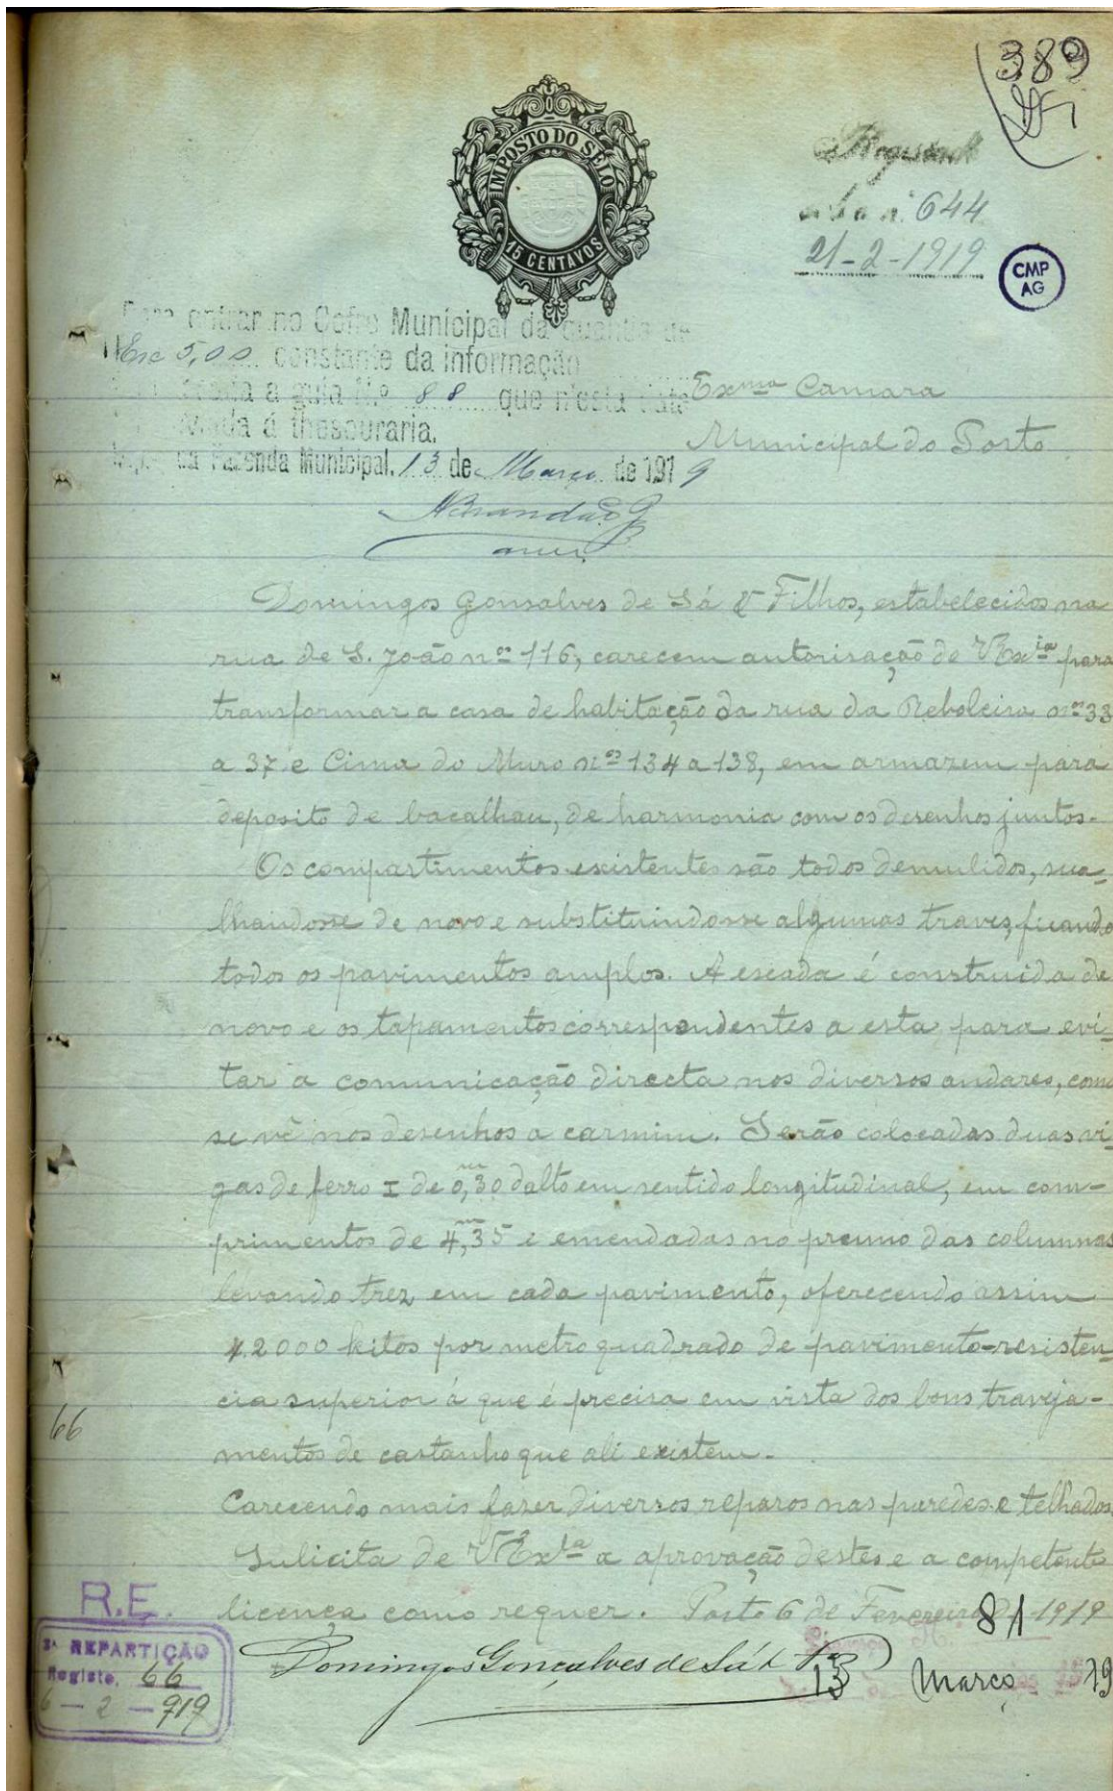 389
IMPOSTO DO SÊLO
15 CENTAVOS
Registado
n.º 644
21-2-1919
CMP
AG
entrar no Cofre Municipal da quantia de
Esc 5,00 constante da informação
a guia N.º 88 que n'esta data
á thesouraria.
da Fazenda Municipal. 13 de Março de 1919
Exma Camara
Municipal do Porto
Domingos Gonsalves de Sá & Filhos, estabelecidos na
rua de S. João nº 116, carecem autorisação de VExia para
transformar a casa de habitação da rua da Reboleira nos 33
a 37 e Cima do Muro nos 134 a 138, em armazem para
deposito de bacalhau, de harmonia com os desenhos juntos.
Os compartimentos existentes são todos demulidos, sua-
lhandosse de novo e substituindosse algumas traves, ficando
todos os pavimentos amplos. A escada é construida de
novo e os tapamentos correspondentes a esta, para evi-
tar a comunicação directa nos diversos andares, como
se vê nos desenhos a carmim. Serão colocadas duas vi-
gas de ferro I de 0,m30 dalto em sentido longitudinal, em com-
primentos de 4,m35 e emendadas no prumo das columnas
levando trez em cada pavimento, oferecendo assim
2000 kilos por metro quadrado de pavimento-resisten-
cia superior á que é precisa em vista dos bons traveja-
mentos de castanho que ali existem.
Carecendo mais fazer diversos reparos nas paredes e telhados,
Sulicita de VExia a aprovação destes e a competente
licença como requer. Porto 6 de Fevereiro de 1919
66
R.E.
3ª REPARTIÇÃO
Registo. 66
6-2-919
Domingos Gonçalves de Sá & Fos
81
13 Março 19